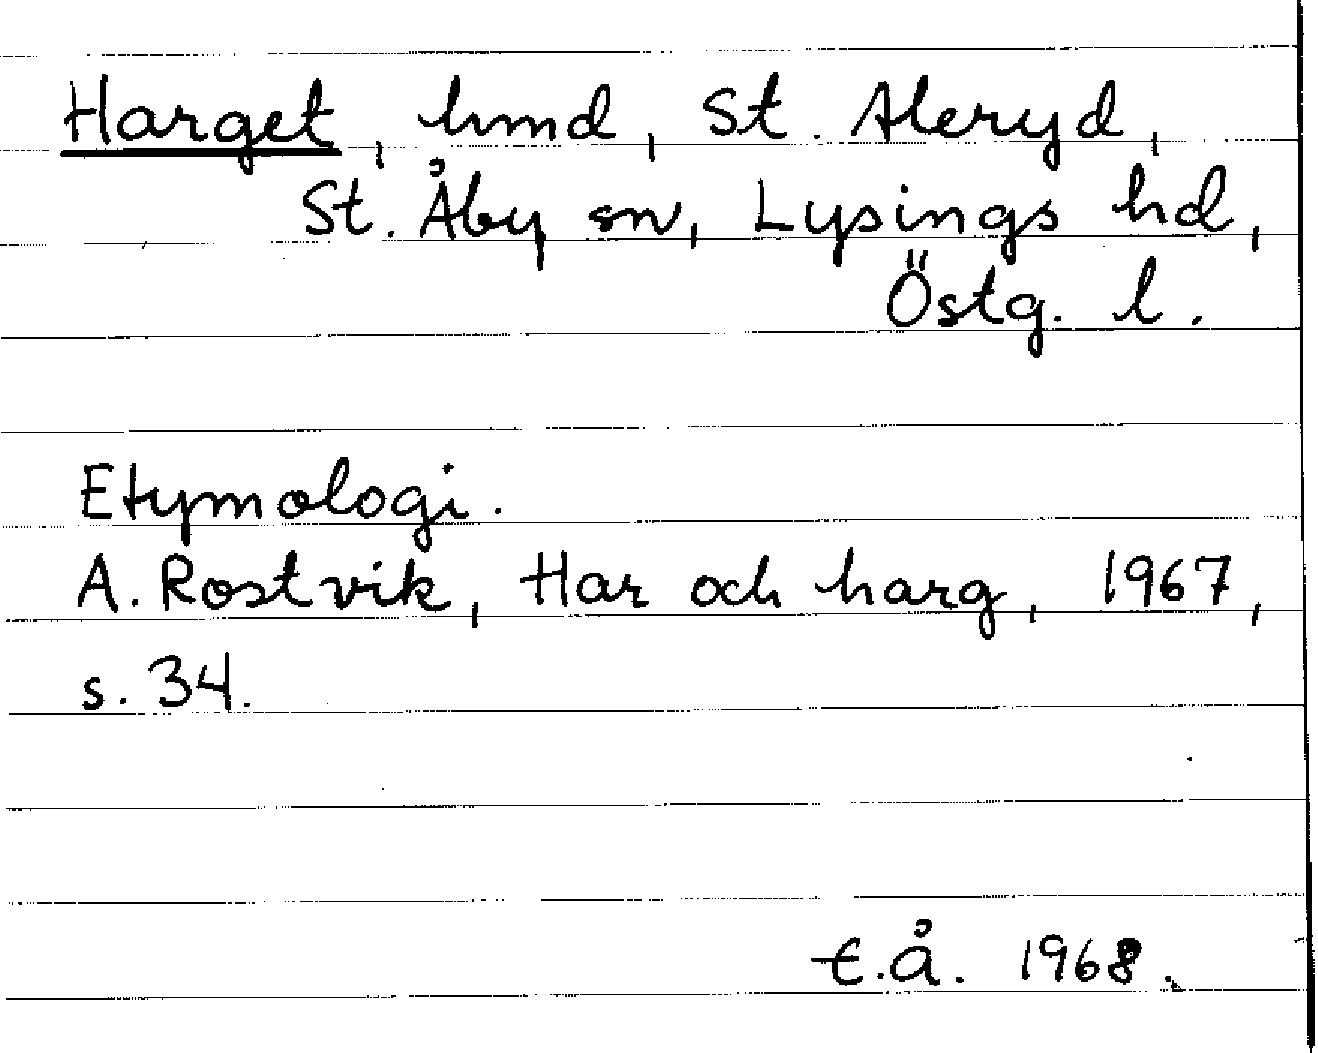 Harget, hmd, St. Aleryd,
St. Åby sn, Lysings hd,
Östg. l.
Etymologi.
A. Rostvik, Har och harg, 1967,
s. 34.
t.å. 1968.